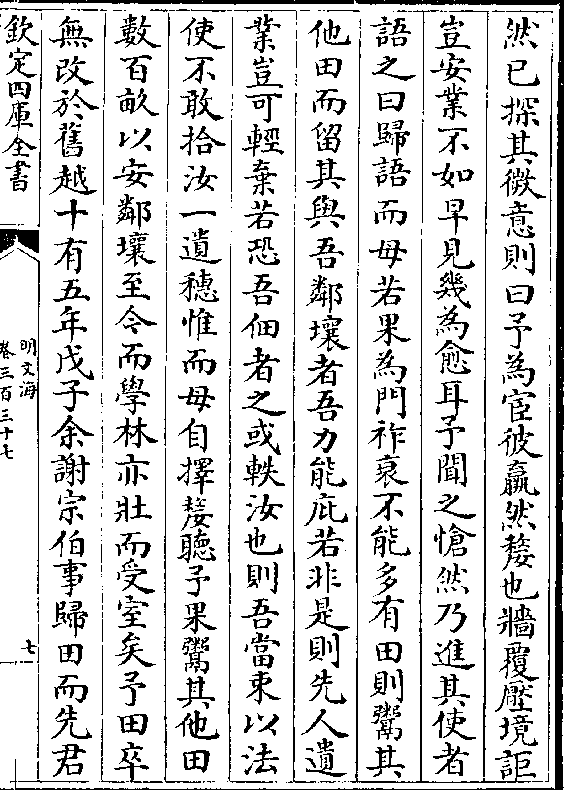 然已探其微意則曰予為宦彼羸然嫠也牆覆壓境詎
豈安業不如早見幾為愈耳予聞之愴然乃進其使者
語之曰歸語而母若果為門祚衰不能多有田則鬻其
他田而留其與吾鄰壤者吾力能庇若非是則先人遺
業豈可輕棄若恐吾佃者之或軼汝也則吾當束以法
使不敢拾汝一遺穗惟而母自擇嫠聽予果鬻其他田
數百畝以安鄰壤至今而學林亦壯而受室矣予田卒
無改於舊越十有五年戊子余謝宗伯事歸田而先君
欽定四庫全書
明文海
卷三百三十七
七